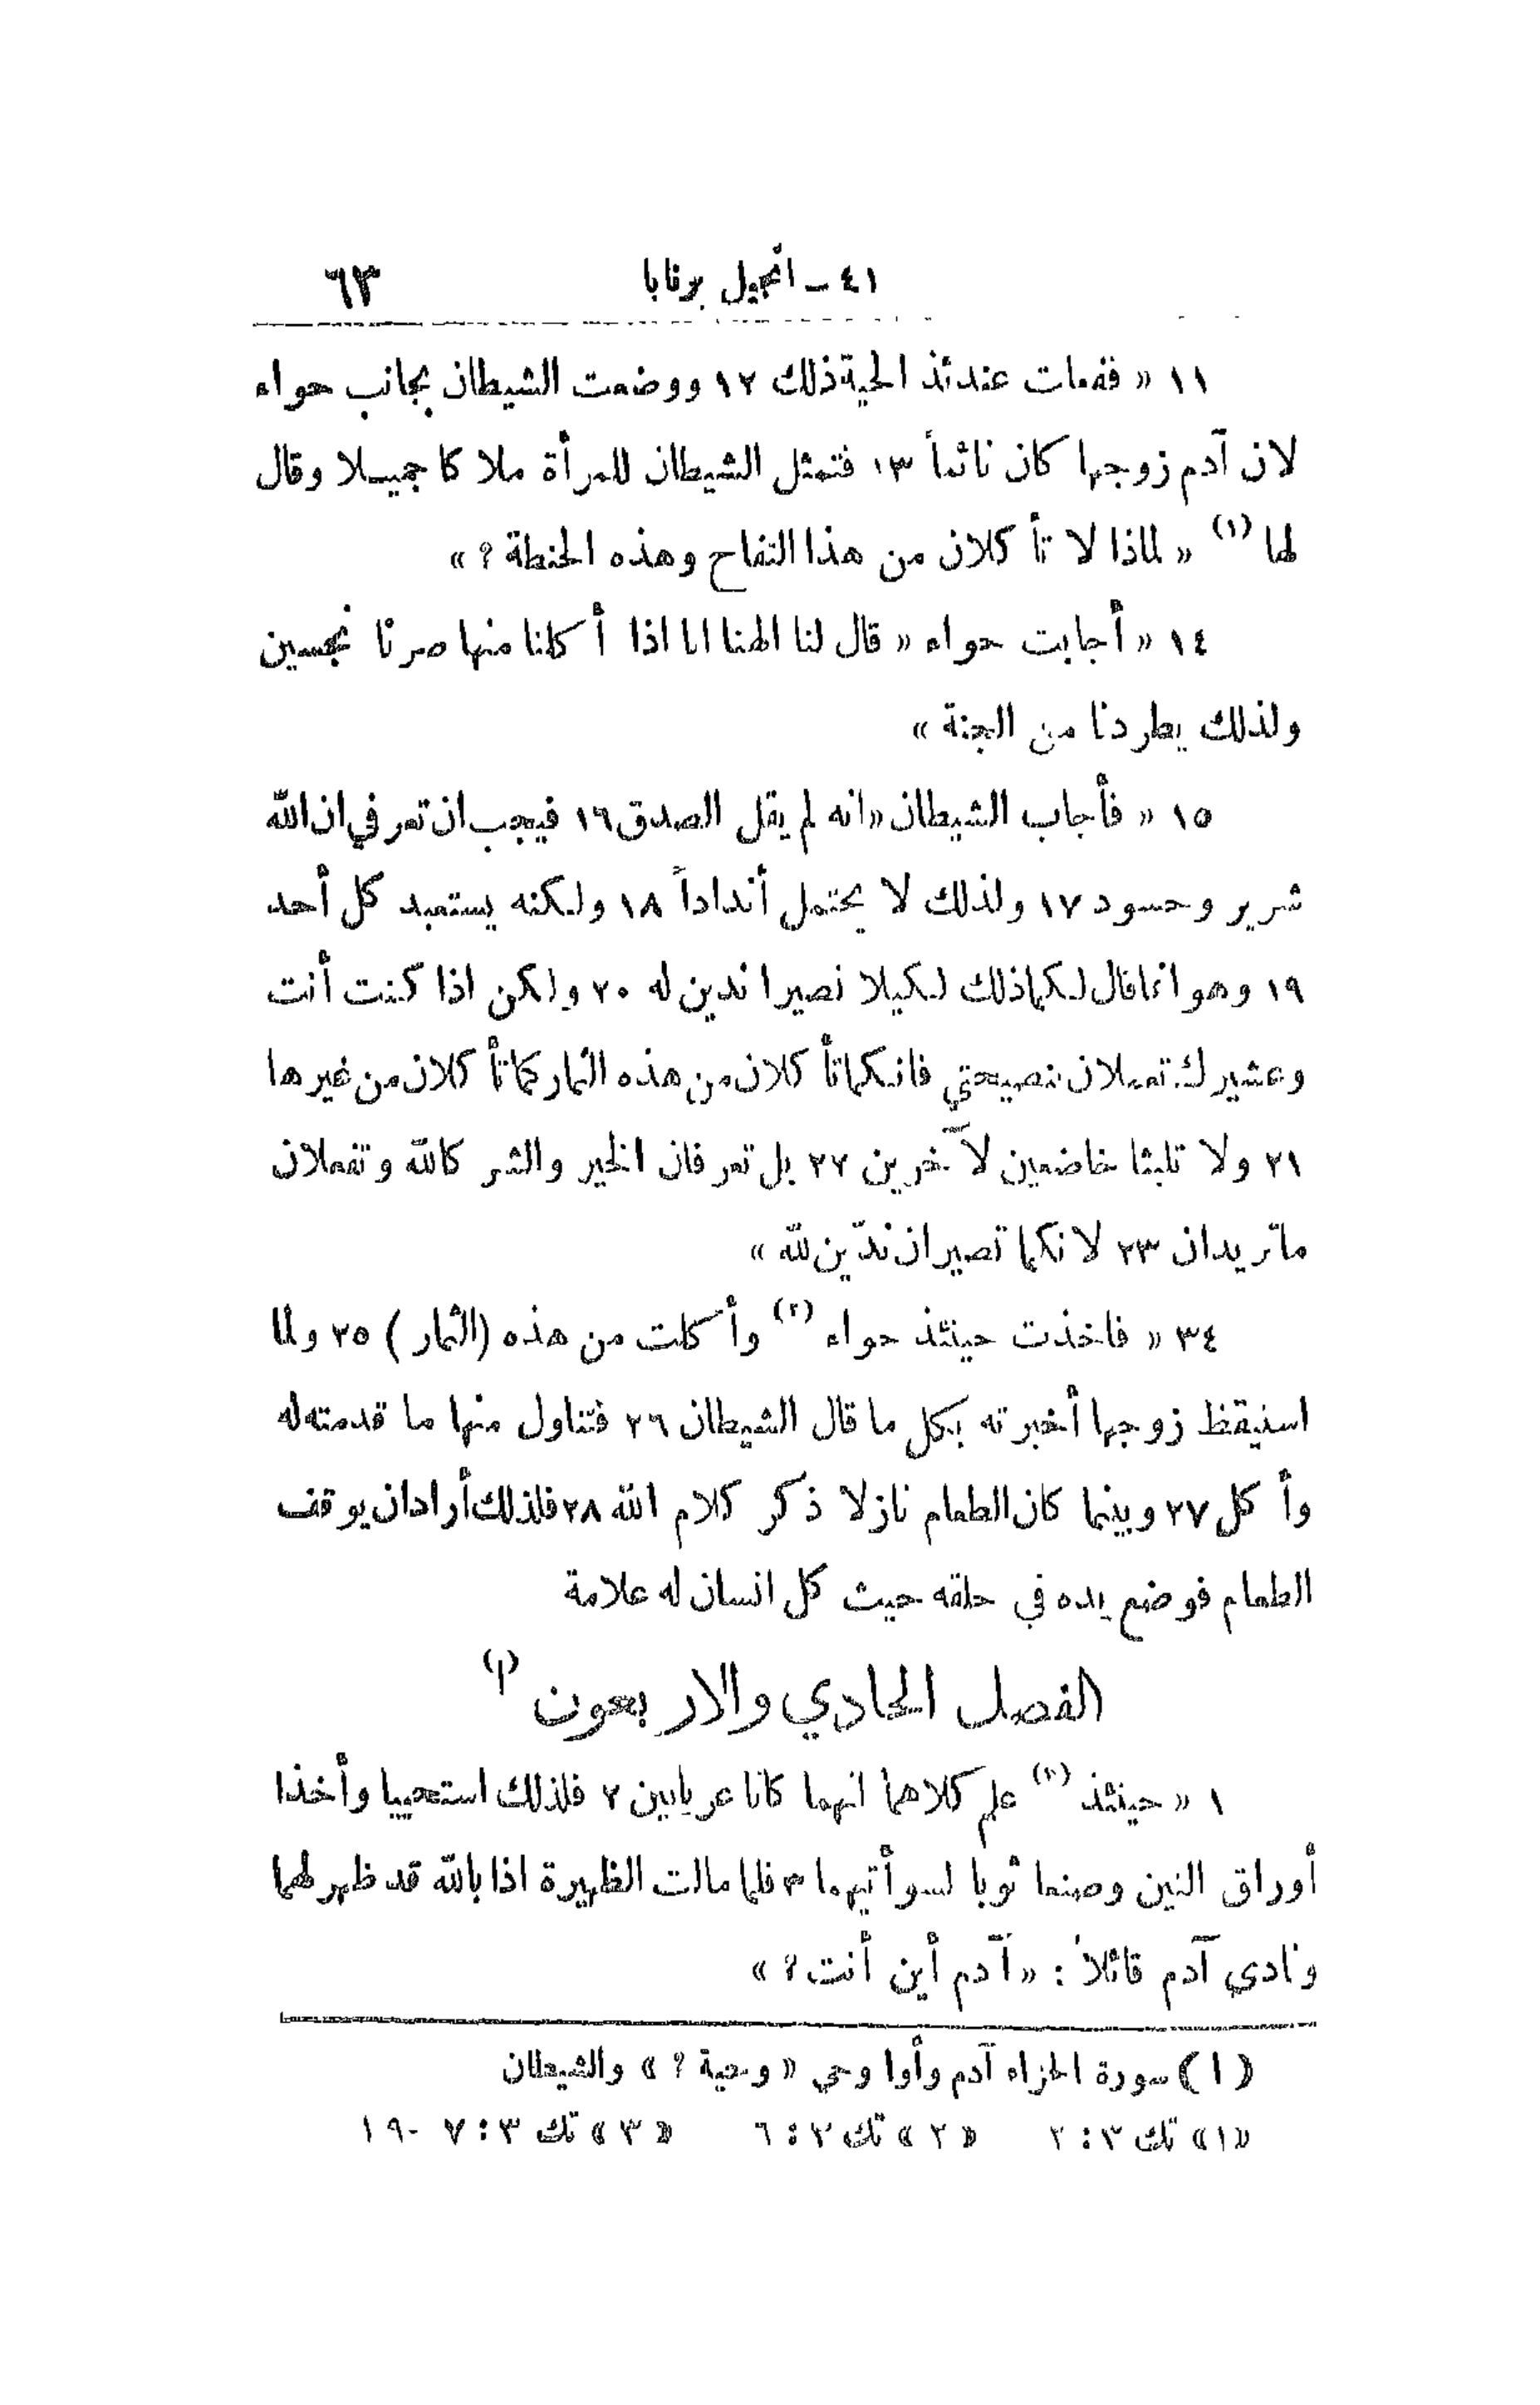 ٤١ – انجيل برنابا ٦٣
١١ « ففعلت عندئذ الحية ذلك ١٢ ووضعت الشيطان بجانب حواء
لان آدم زوجها كان نائماً ١٣ فتمثل الشيطان للمرأة ملاكا جميلا وقال
لها (١) « لماذا لا تأكلان من هذا التفاح وهذه الحنطة ؟ »
١٤ « أجابت حواء « قال لنا الهنا انا اذا أكلنا منها صرنا نجسين
ولذلك يطردنا من الجنة »
١٥ « فأجاب الشيطان « انه لم يقل الصدق ١٦ فيجب ان تعرفي ان الله
شرير وحسود ١٧ ولذلك لا يحتمل أنداداً ١٨ ولكنه يستعبد كل أحد
١٩ وهو انما قال لكما ذلك لكيلا تصيرا ندين له ٢٠ ولكن اذا كنت أنت
وعشيرك تعملان بنصيحتي فانكما تأكلان من هذه الثمار كما تأكلان من غيرها
٢١ ولا تلبثا خاضعين لآخرين ٢٢ بل تعرفان الخير والشر كالله وتفعلان
ما تريدان ٢٣ لانكما تصيران ندّين لله »
٣٤ « فاخذت حينئذ حواء (٢) وأكلت من هذه (الثمار) ٢٥ ولما
استيقظ زوجها أخبرته بكل ما قال الشيطان ٢٦ فتناول منها ما قدمته له
وأكل ٢٧ وبينما كان الطعام نازلا ذكر كلام الله ٢٨ فلذلك أراد ان يوقف
الطعام فوضع يده في حلقه حيث كل انسان له علامة
الفصل الحادي والاربعون (١)
١ « حينئذ (٣) علم كلاهما انهما كانا عريانين ٢ فلذلك استحييا وأخذا
أوراق التين وصنعا ثوبا لسوأتيهما ٣ فلما مالت الظهيرة اذا بالله قد ظهر لهما
ونادى آدم قائلاً : « آدم أين أنت ؟ »
(١) سورة الجزاء آدم وأوا وحي « وحية ؟ » والشيطان
«١» تك ٣ : ٢ «٢» تك ٣ : ٦ «٣» تك ٣ : ٧ - ١٩